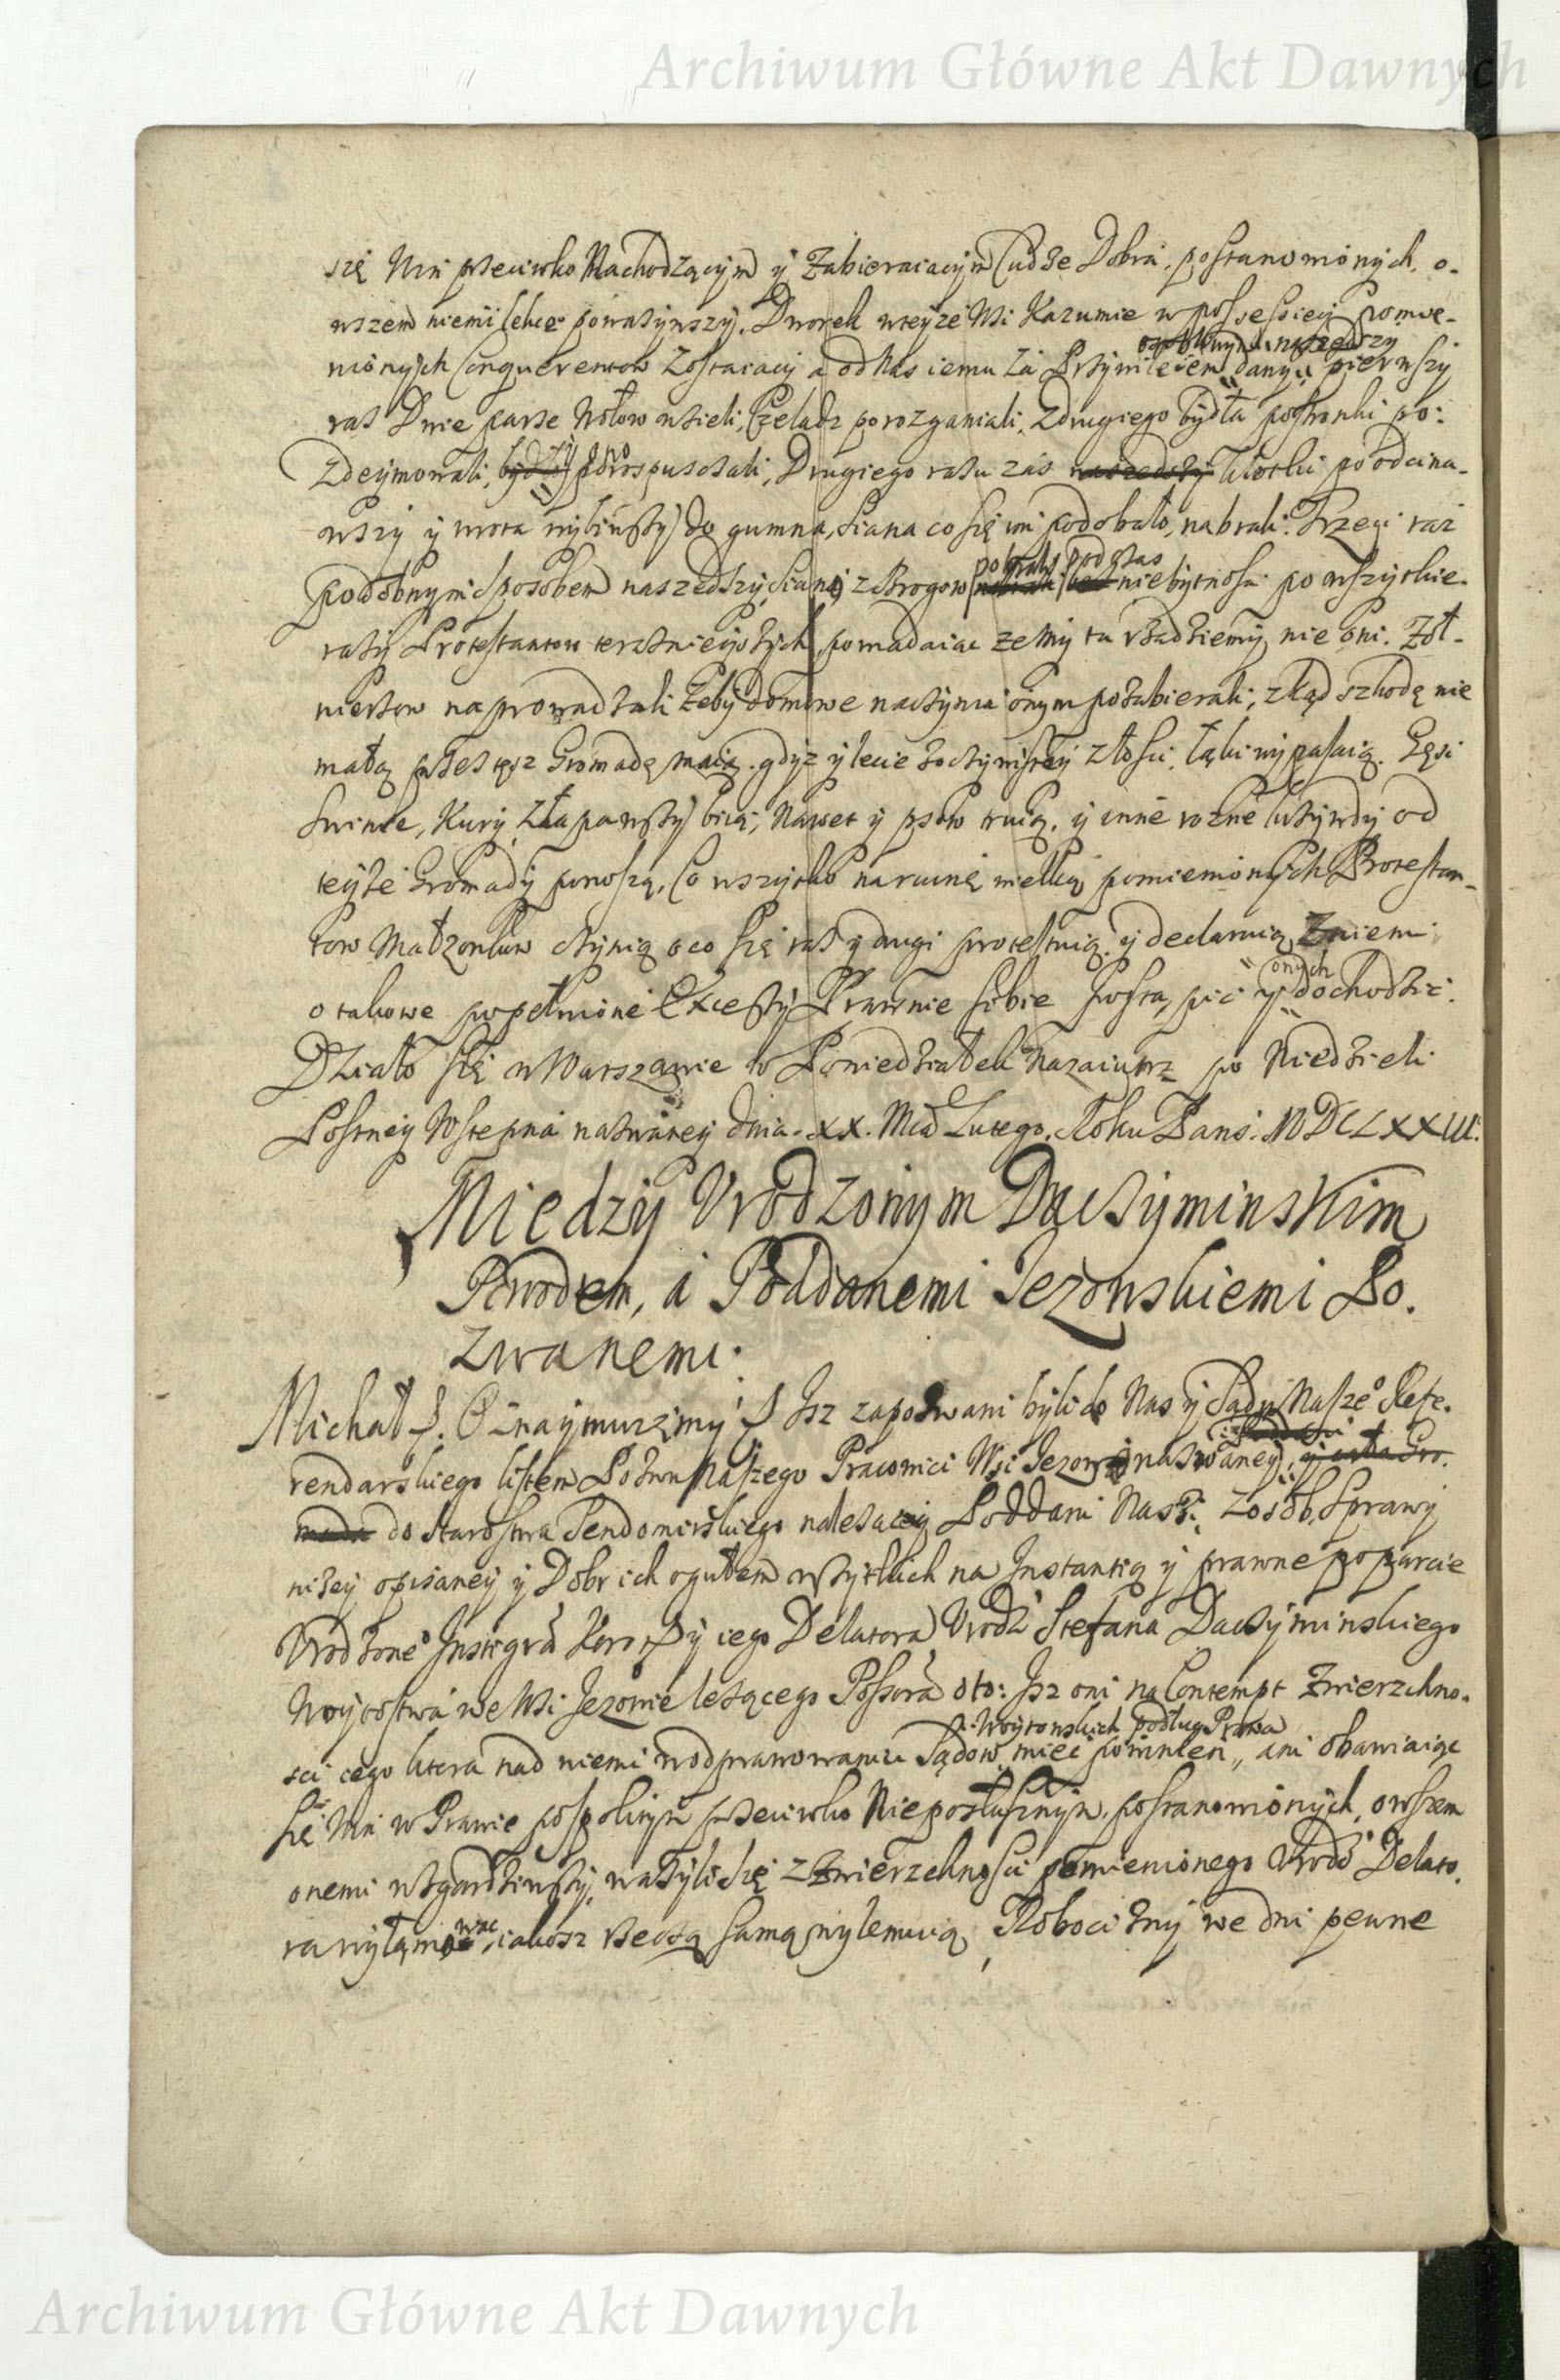 Archiwum Główne Akt Dawnych
się Win przeciwko Nachodzącym y Zabieraiacym Cudze Dobra, postanowionych, o-
wszem niemi lekce poważywszy, Dworek wteyże Wsi Kazumie w possessiey pomie-
nionych Conquerentow Zostaiacy a od Nas iemu Za Przywileiem dany, naszedszy pierwszy
raz Dwie parze Wołow wzieli, Czeladz porozganiali, Zdrugiego bydła postronki po-
zdeymowali, rospuszczali, Drugiego razu zas naszedszy Wrotki poodcina-
wszy y wrota wybiwszy do gumna, siana co się im podobało, nabrali. Trzeci raz
podobnym sposobem naszedszy, siano z Brogow pobrali podczas niebytnosci powszytkie
razy Protestantow terazneiyszych, powiadaiac ze My tu Rządziemy, nie oni. Żoł-
nierzow naprowadzali żeby domowe naczynia onym pozabierali, zkąd szkodę nie
małą przez tęsz Gromadę maią. gdyz y lecie Zoczywistey złosci, łąki wypasaią. Gęsi
Swinie, Kury, Złapawszy biią, Nawet y psow truią, y inne rożne krzywdy od
teyże Gromady ponoszą, Co wszytko naruinę wielką pomienionych Protestan-
tow Małzonkow czynią o co się raz y drugi protestuią, y declaruią Zniemi
o takowe popełnione Excessy Prawnie sobie postąpić y onych dochodzić.
Działo się w Warszawie w Poniedziałek Nazaiutrz po Niedzieli
Postney Wstępna nazwaney dnia. XX. Mca Lutego. Roku Pans: MDCLXXIII.
Miedzy Urodzonym Daczyminskim
Powodem, a Poddanemi Jezowskiemi Po.
zwanemi.
Michał &. Oznaymuięmy & Isz zapozwani byli do Nas y Sądu Nasze° Refe.
rendarskiego listem Pozwu Naszego Pracowici Wsi Jezowe nazwaney, y cała Gro.
mada do Starostwa Sendomirskiego nalezacey Poddani Nasi, Zosob, Sprawy
niżey opisaney y Dobr ich ogułem wszytkich na Instantią y prawne poparcie
Urodzone° Instigra Koro: y iego Delatora Urodz: Stefana Daczyminskiego
Woytostwa we Wsi Jezowie lezącego Possora oto: Isz oni na Contempt Zwierzchno-
sci iego ktora nad niemi w odprawowaniu Sądow Woytowskich podług Prawa miec powinien, ani obawiaiąc
się Win w Prawie pospolitym przeciwko Nieposłusznym, postanowionych, owszem
onemi wzgardziwszy, wazyli się z Zwierzchnosci pomienionego Urodz: Delato.
ra wyłamowac, iakosz Rzeczą samą wylamuią, Robocizny we dni pewne
Archiwum Główne Akt Dawnych